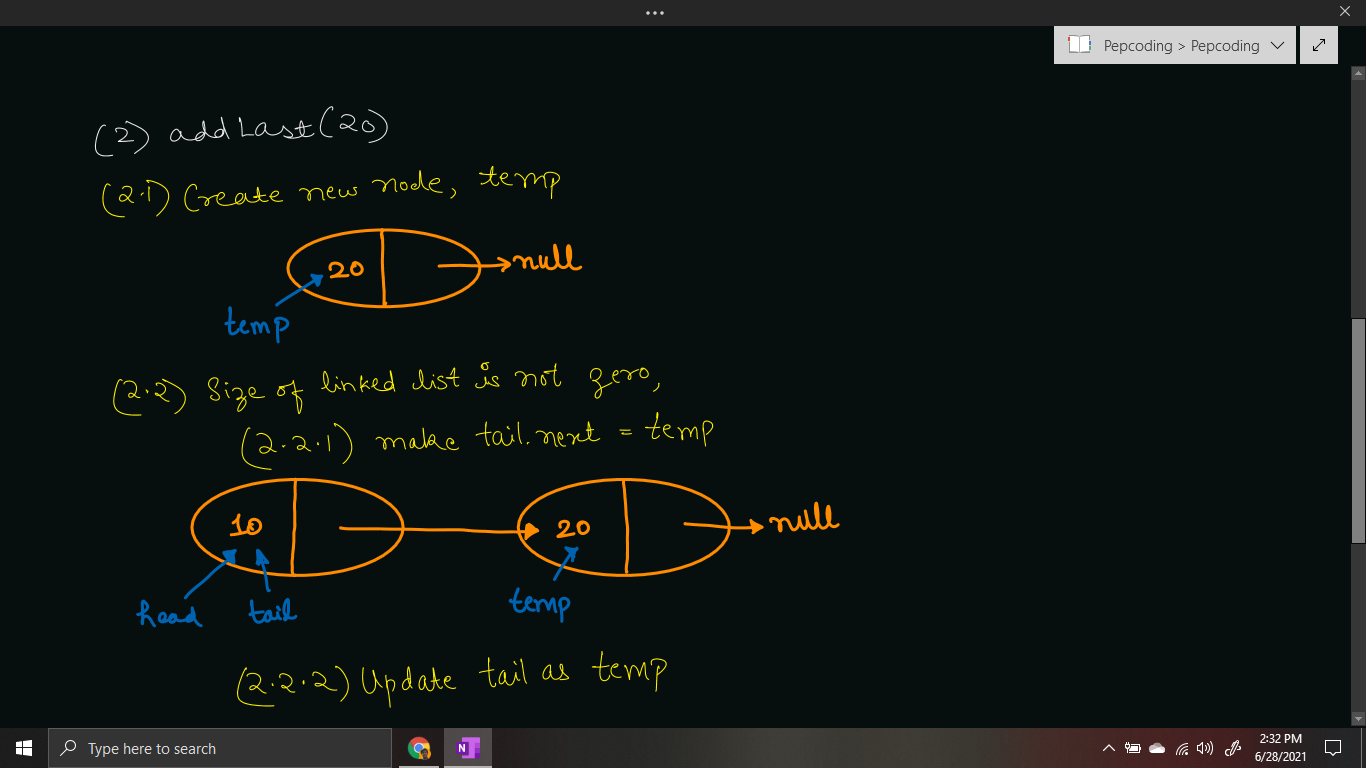 Pepcoding > Pepcoding
(2) addLast(20)
(2.1) Create new node, temp
20
null
temp
(2.2) Size of linked list is not zero,
(2.2.1) make tail.next = temp
10
20
null
head
tail
temp
(2.2.2) Update tail as temp
Type here to search
2:32 PM
6/28/2021